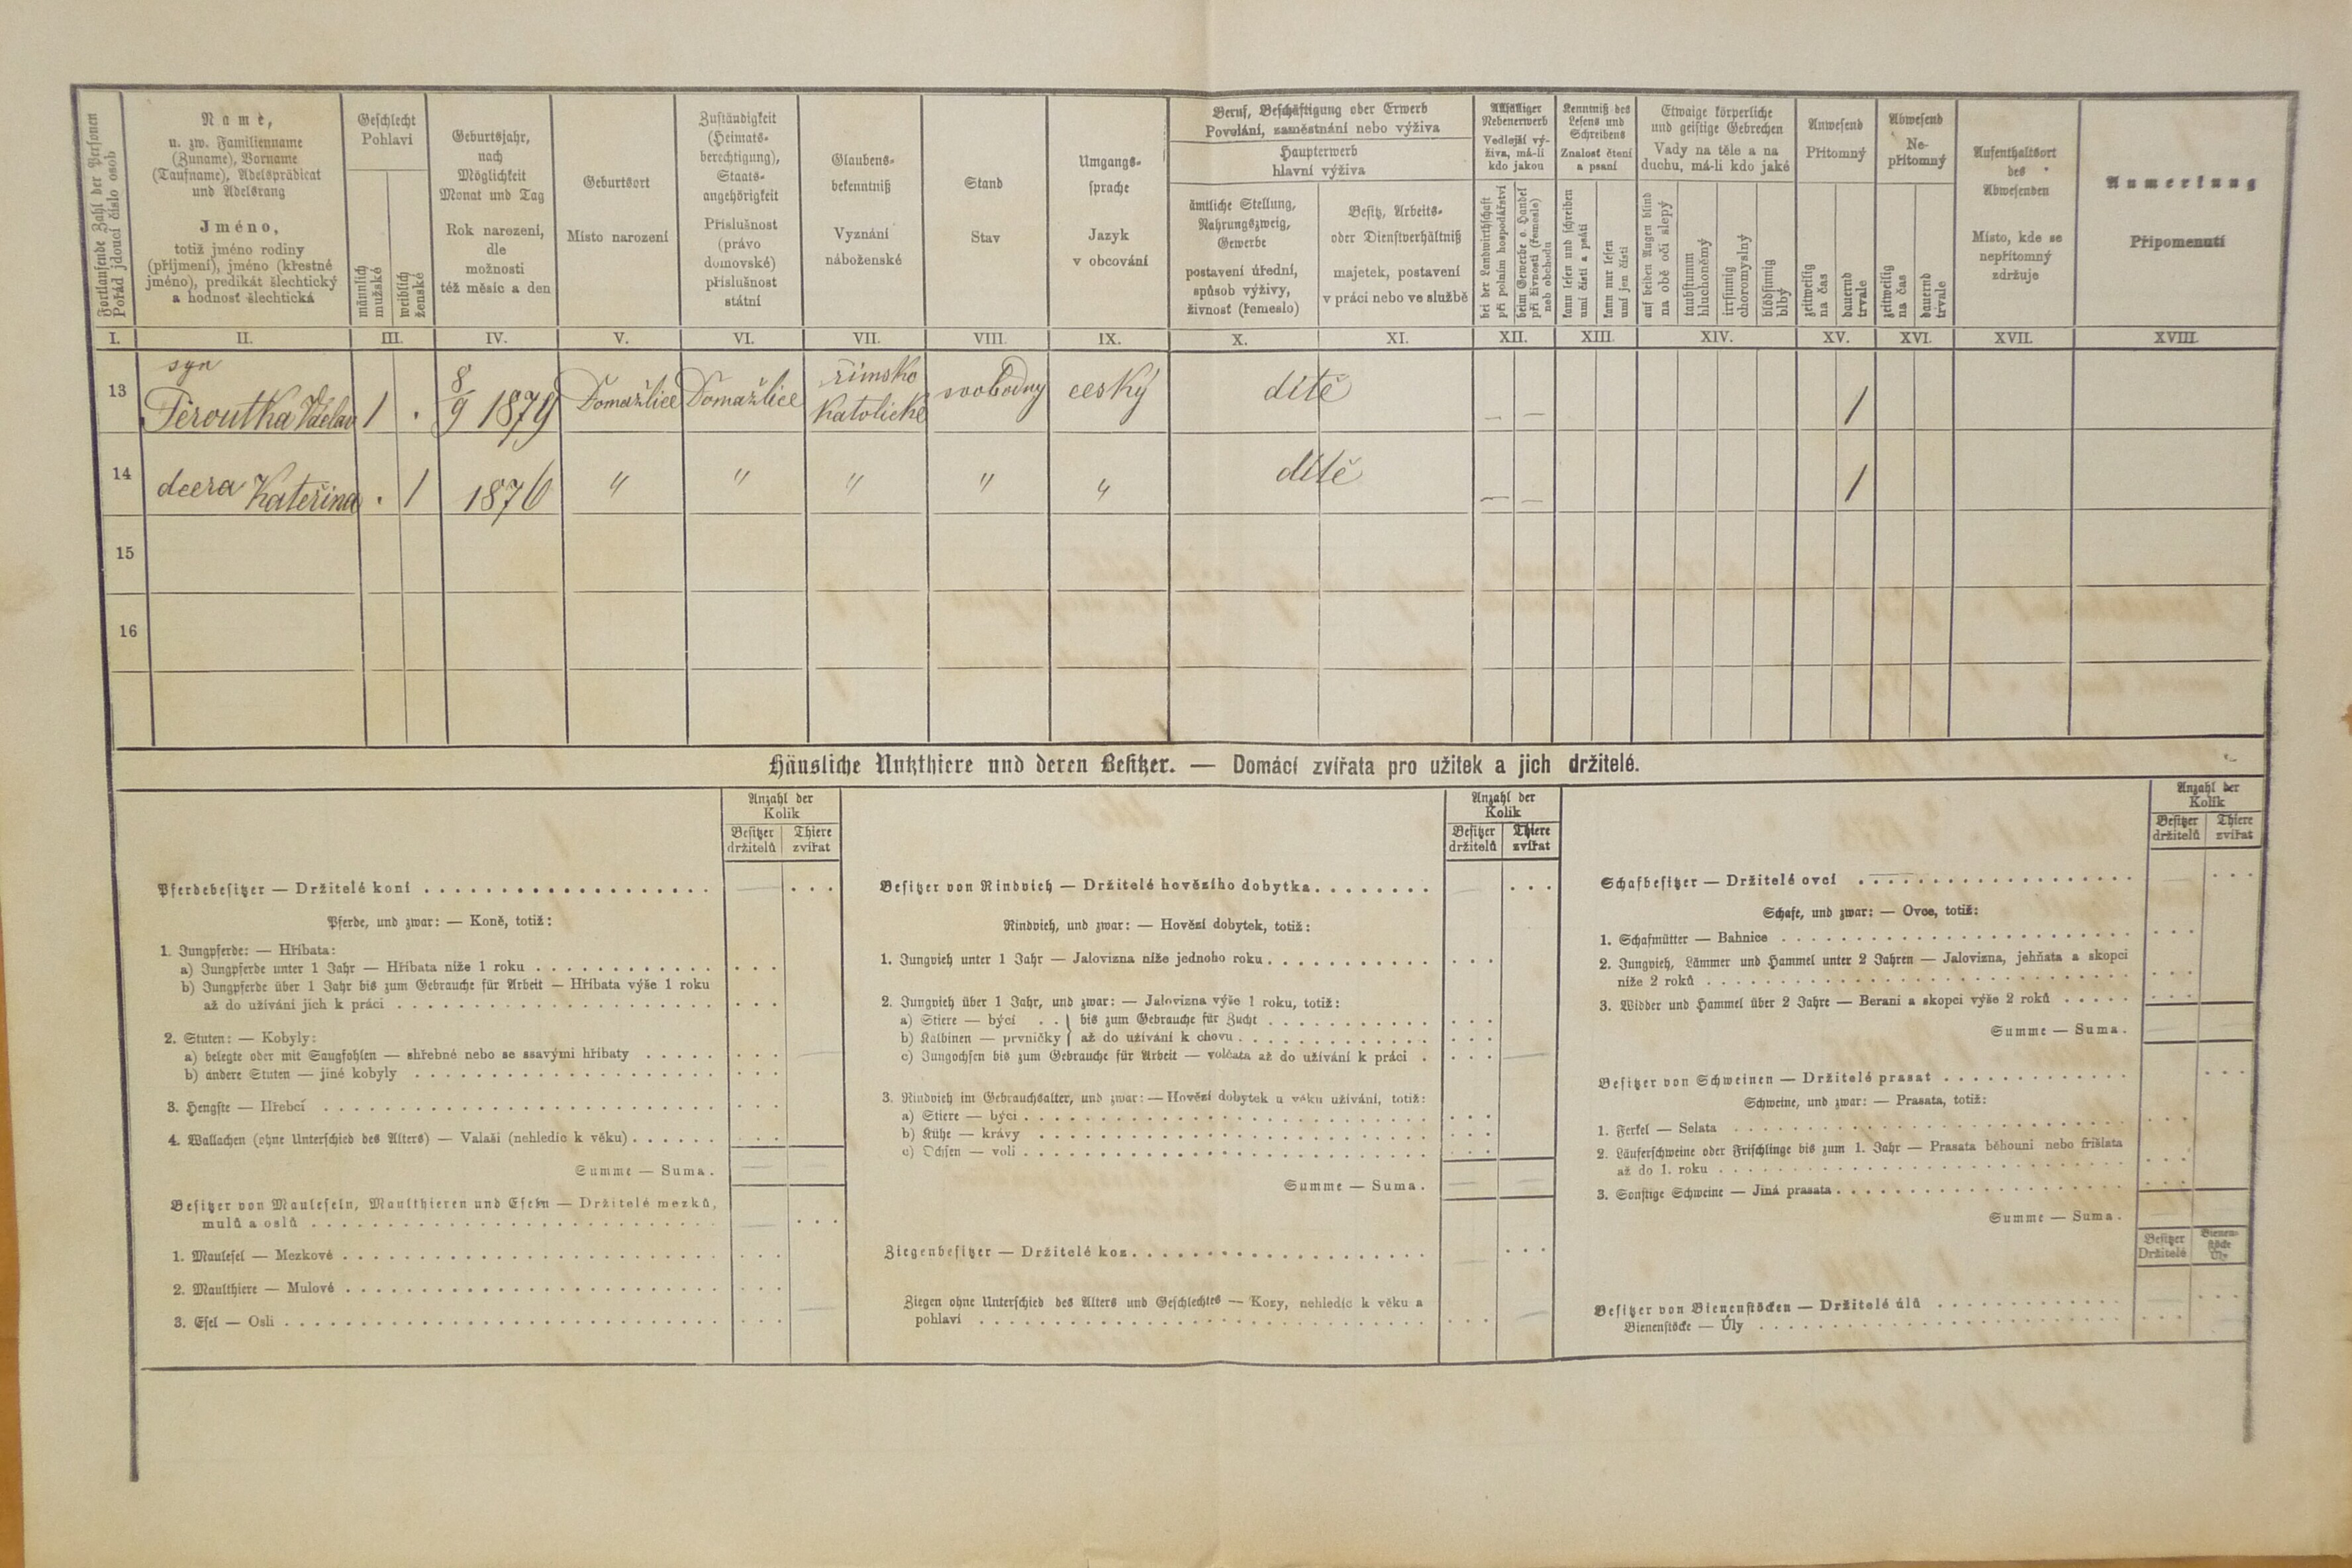 Fortlaufende Zahl der Personen
Pořád jdoucí číslo osob
Name,
u. zw. Familienname
(Zuname), Vorname
(Taufname), Adelsprädicat
und Adelsrang
Jméno,
totiž jméno rodiny
(příjmení), jméno (křestné
jméno), predikát šlechtický
a hodnosť šlechtická
Geschlecht
Pohlaví
männlich
mužské
weiblich
ženské
Geburtsjahr,
nach
Möglichkeit
Monat und Tag
Rok narození,
dle
možnosti
též měsíc a den
Geburtsort
Místo narození
Zuständigkeit
(Heimats-
berechtigung),
Staats-
angehörigkeit
Příslušnost
(právo
domovské)
příslušnost
státní
Glaubens-
bekenntniß
Vyznání
náboženské
Stand
Stav
Umgangs-
sprache
Jazyk
v obcování
Beruf, Beschäftigung oder Erwerb
Povolání, zaměstnání nebo výživa
Haupterwerb
hlavní výživa
ämtliche Stellung,
Nahrungszweig,
Gewerbe
postavení úřední,
spůsob výživy,
živnosť (řemeslo)
Besitz, Arbeits-
oder Dienstverhältniß
majetek, postavení
v práci nebo ve službě
Allfälliger
Nebenerwerb
Vedlejší vý-
živa, má-li
kdo jakou
bei der Landwirthschaft
při polním hospodářství
beim Gewerbe o. Handel
při živnosti (řemesle)
neb obchodu
Kenntniß des
Lesens und
Schreibens
Znalosť čtení
a psaní
kann lesen und schreiben
umí čísti a psáti
kann nur lesen
umí jen čísti
Etwaige körperliche
und geistige Gebrechen
Vady na těle a na
duchu, má-li kdo jaké
auf beiden Augen blind
na obě oči slepý
taubstumm
hluchoněmý
irrsinnig
choromyslný
blödsinnig
blbý
Anwesend
Přítomný
zeitweilig
na čas
dauernd
trvale
Abwesend
Ne-
přítomný
zeitweilig
na čas
dauernd
trvale
Aufenthaltsort
des
Abwesenden
Místo, kde se
nepřítomný
zdržuje
Anmerkung
Připomenutí
I. II. III. IV. V. VI. VII. VIII. IX. X. XI. XII. XIII. XIV. XV. XVI. XVII. XVIII.
syn
13 Peroutka Václav 1 . 8/9 1879 Domažlice Domažlice římsko katolické svobodny český dítě — — 1
14 dcera Kateřina . 1 1876 " " " " " dítě — — 1
15
16
Häusliche Nutzthiere und deren Besitzer. — Domácí zvířata pro užitek a jich držitelé.
Anzahl der
Kolik
Besitzer
držitelů
Thiere
zvířat
Pferdebesitzer — Držitelé koní
Pferde, und zwar: — Koně, totiž:
1. Jungpferde: — Hříbata:
a) Jungpferde unter 1 Jahr — Hříbata níže 1 roku
b) Jungpferde über 1 Jahr bis zum Gebrauche für Arbeit — Hříbata výše 1 roku
až do užívání jich k práci
2. Stuten: — Kobyly:
a) belegte oder mit Saugfohlen — shřebné nebo se ssavými hříbaty
b) andere Stuten — jiné kobyly
3. Hengste — Hřebci
4. Wallachen (ohne Unterschied des Alters) — Valaši (nehledíc k věku)
Summe — Suma.
Besitzer von Mauleseln, Maulthieren und Eseln — Držitelé mezků,
mulů a oslů
1. Maulesel — Mezkové
2. Maulthiere — Mulové
3. Esel — Osli
Anzahl der
Kolik
Besitzer
držitelů
Thiere
zvířat
Besitzer von Rindvieh — Držitelé hovězího dobytka
Rindvieh, und zwar: — Hovězí dobytek, totiž:
1. Jungvieh unter 1 Jahr — Jalovizna níže jednoho roku
2. Jungvieh über 1 Jahr, und zwar: — Jalovizna výše 1 roku, totiž:
a) Stiere — býci . . } bis zum Gebrauche für Zucht
b) Kalbinen — prvničky } až do užívání k chovu
c) Jungochsen bis zum Gebrauche für Arbeit — volčata až do užívání k práci
3. Rindvieh im Gebrauchsalter, und zwar: — Hovězí dobytek u věku užívání, totiž:
a) Stiere — býci
b) Kühe — krávy
c) Ochsen — voli
Summe — Suma.
Ziegenbesitzer — Držitelé koz
Ziegen ohne Unterschied des Alters und Geschlechtes — Kozy, nehledíc k věku a
pohlaví
Anzahl der
Kolik
Besitzer
držitelů
Thiere
zvířat
Schafbesitzer — Držitelé ovcí
Schafe, und zwar: — Ovce, totiž:
1. Schafmütter — Bahnice
2. Jungvieh, Lämmer und Hammel unter 2 Jahren — Jalovizna, jehňata a skopci
níže 2 roků
3. Widder und Hammel über 2 Jahre — Berani a skopci výše 2 roků
Summe — Suma.
Besitzer von Schweinen — Držitelé prasat
Schweine, und zwar: — Prasata, totiž:
1. Ferkel — Selata
2. Läuferschweine oder Frischlinge bis zum 1. Jahr — Prasata běhouni nebo frišlata
až do 1. roku
3. Sonstige Schweine — Jiná prasata
Summe — Suma.
Besitzer
Držitelé
Bienen-
stöcke
Úly
Besitzer von Bienenstöcken — Držitelé úlů
Bienenstöcke — Úly